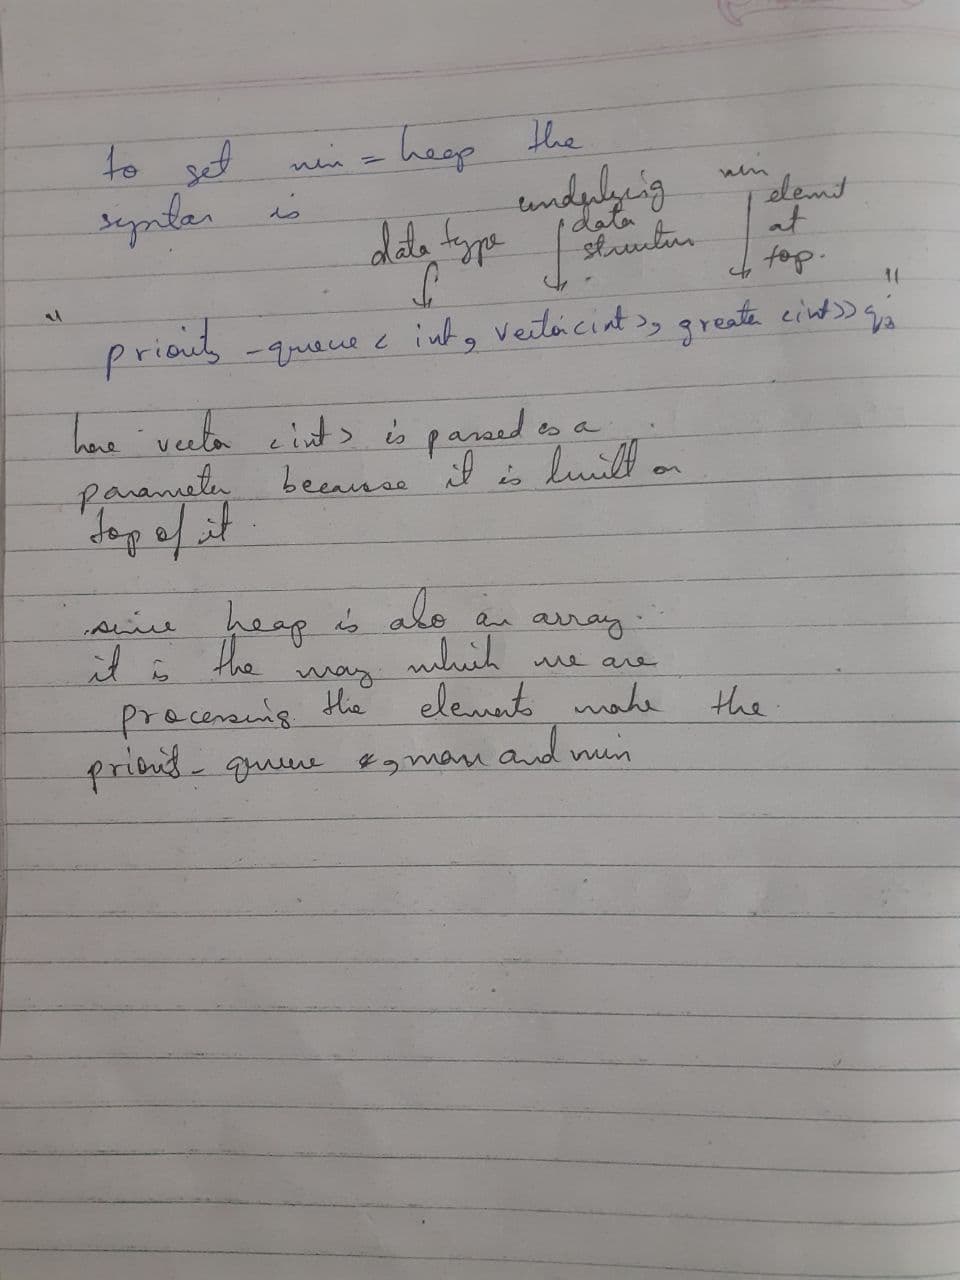 to set min = heap the
syntax is
data type
underlying
data
structure
min
element
at
top.
" priority - queue < int, vector<int>, greater <int>> q; "
here vector <int> is parsed as a
parameter because it is built on
top of it.
since heap is also an array.
it is the way which we are
processing the elements make the
priority - queue , max and min